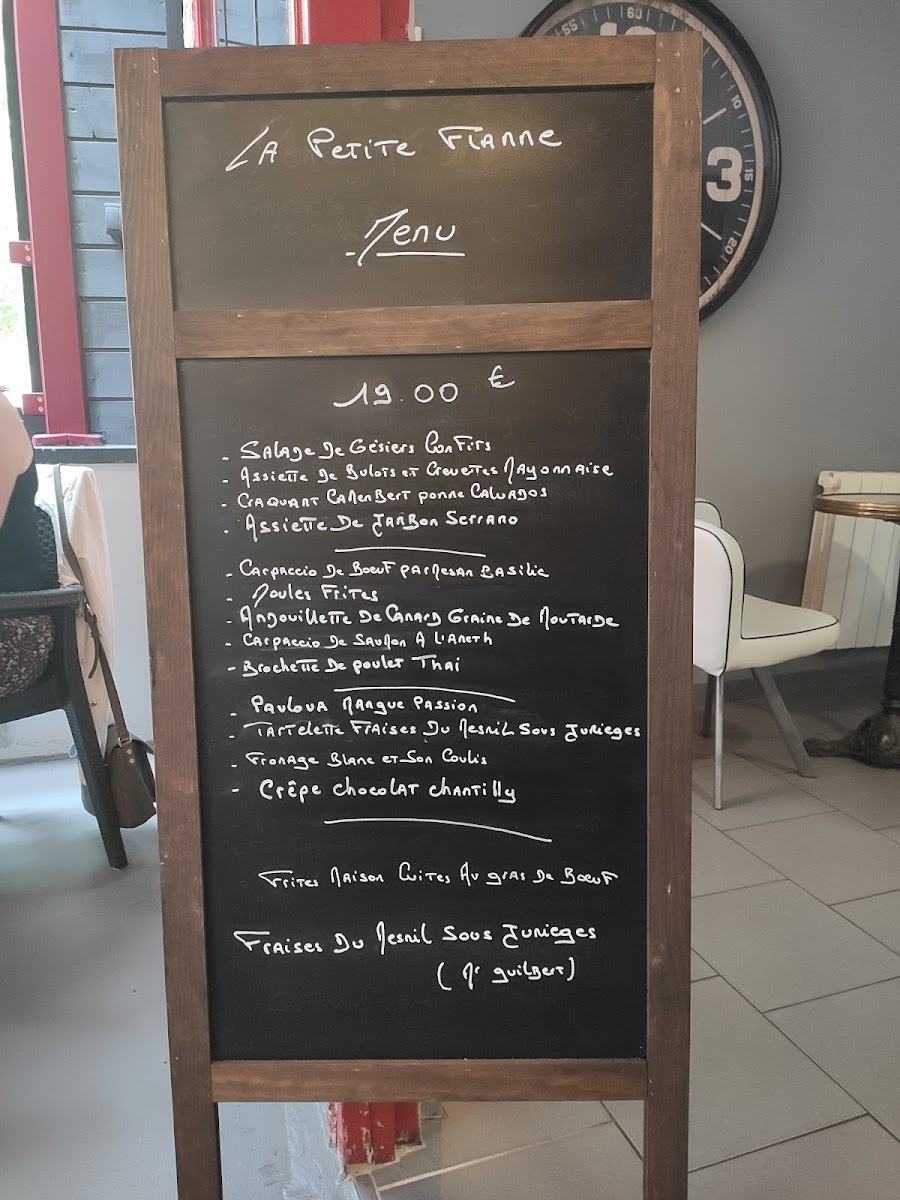 La Petite Flamme
Menu
19.00 €
- Salade De Gésiers Confits
- Assiette De Bulots et Crevettes Mayonnaise
- Craquant Camembert pomme Calvados
- Assiette De Jambon Serrano
- Carpaccio De Bœuf parmesan Basilic
- Moules Frites
- Andouillette De Canard Graine De Moutarde
- Carpaccio De Saumon A l'Aneth
- Brochette De poulet Thai
- Pavlova Mangue Passion
- Tartelette Fraises Du Mesnil Sous Jumieges
- Fromage Blanc et Son Coulis
- Crêpe chocolat chantilly
Frites Maison Cuites Au gras De Bœuf
Fraises Du Mesnil Sous Jumieges
(Mr guilbert)
55
60
10
3
15
20